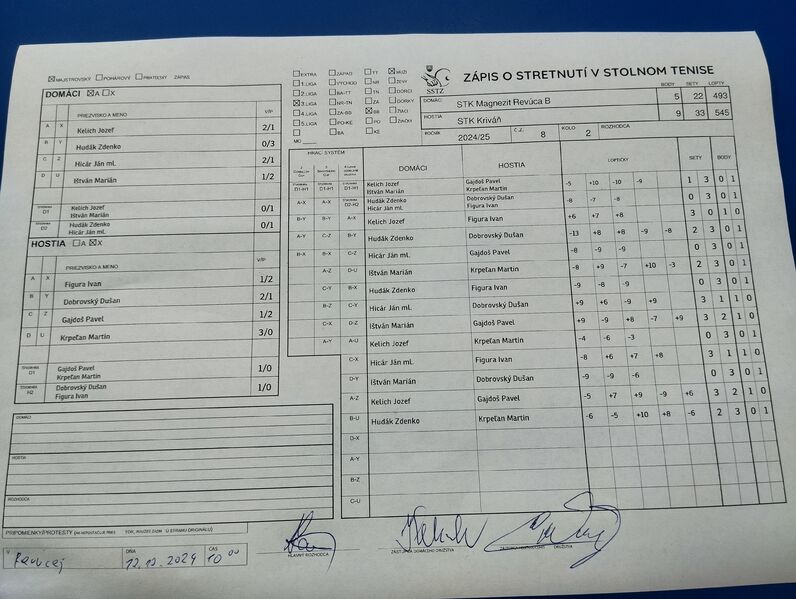 MAJSTROVSKÝ POHÁROVÝ PRIATEĽSKÝ ZÁPAS
EXTRA ZÁPAD TT MUŽI
1.LIGA VÝCHOD NR ŽENY
2.LIGA BA-TT TN DORCI
3.LIGA NR-TN ZA DORKY
4.LIGA ZA-BB BB ŽIACI
5.LIGA PO-KE PO ŽIAČKY
BA KE
MO
SSTZ
ZÁPIS O STRETNUTÍ V STOLNOM TENISE
BODY SETY LOPTY
DOMÁCI STK Magnezit Revúca B 5 22 493
HOSTIA STK Kriváň 9 33 545
ROČNÍK 2024/25 Č.Z. 8 KOLO 2 ROZHODCA
DOMÁCI A X
PRIEZVISKO A MENO V/P
A X Kelich Jozef 2/1
B Y Hudák Zdenko 0/3
C Z Hicár Ján ml. 2/1
D U Ištván Marián 1/2
D1 Kelich Jozef 0/1
Ištván Marián
D2 Hudák Zdenko 0/1
Hicár Ján ml.
HOSTIA A X
PRIEZVISKO A MENO V/P
A X Figura Ivan 1/2
B Y Dobrovský Dušan 2/1
C Z Gajdoš Pavel 1/2
D U Krpeľan Martin 3/0
D1 Gajdoš Pavel 1/0
Krpeľan Martin
H2 Dobrovský Dušan 1/0
Figura Ivan
HRACÍ SYSTÉM
DOMÁCI HOSTIA LOPTIČKY SETY BODY
D1-H1 D1-H1 D1-H1 Kelich Jozef Gajdoš Pavel -5 +10 -10 -9 1 3 0 1
Ištván Marián Krpeľan Martin
A-X A-X D2-H2 Hudák Zdenko Dobrovský Dušan -8 -7 -8 0 3 0 1
Hicár Ján ml. Figura Ivan
B-Y B-Y A-X Kelich Jozef Figura Ivan +6 +7 +8 3 0 1 0
A-Y C-Z B-Y Hudák Zdenko Dobrovský Dušan -13 +8 +8 -9 -8 2 3 0 1
B-X B-X C-Z Hicár Ján ml. Gajdoš Pavel -8 -9 -9 0 3 0 1
A-Z D-U Ištván Marián Krpeľan Martin -8 +9 -7 +10 -3 2 3 0 1
C-Y B-X Hudák Zdenko Figura Ivan -9 -8 -9 0 3 0 1
B-Z C-Y Hicár Ján ml. Dobrovský Dušan +9 +6 -9 +9 3 1 1 0
C-X D-Z Ištván Marián Gajdoš Pavel +9 -9 +8 -7 +9 3 2 1 0
A-Y A-U Kelich Jozef Krpeľan Martin -4 -6 -3 0 3 0 1
C-X Hicár Ján ml. Figura Ivan -8 +6 +7 +8 3 1 1 0
D-Y Ištván Marián Dobrovský Dušan -9 -9 -6 0 3 0 1
A-Z Kelich Jozef Gajdoš Pavel -5 +7 +9 -9 +6 3 2 1 0
B-U Hudák Zdenko Krpeľan Martin -6 -5 +10 +8 -6 2 3 0 1
D-X
A-Y
B-Z
C-U
DOMÁCI
HOSTIA
ROZHODCA
PRIPOMIENKY/PROTESTY
V DŇA 12.10.2024 ČAS 10 00
HLAVNÝ ROZHODCA
ZÁSTUPCA DOMÁCEHO DRUŽSTVA
DRUŽSTVA